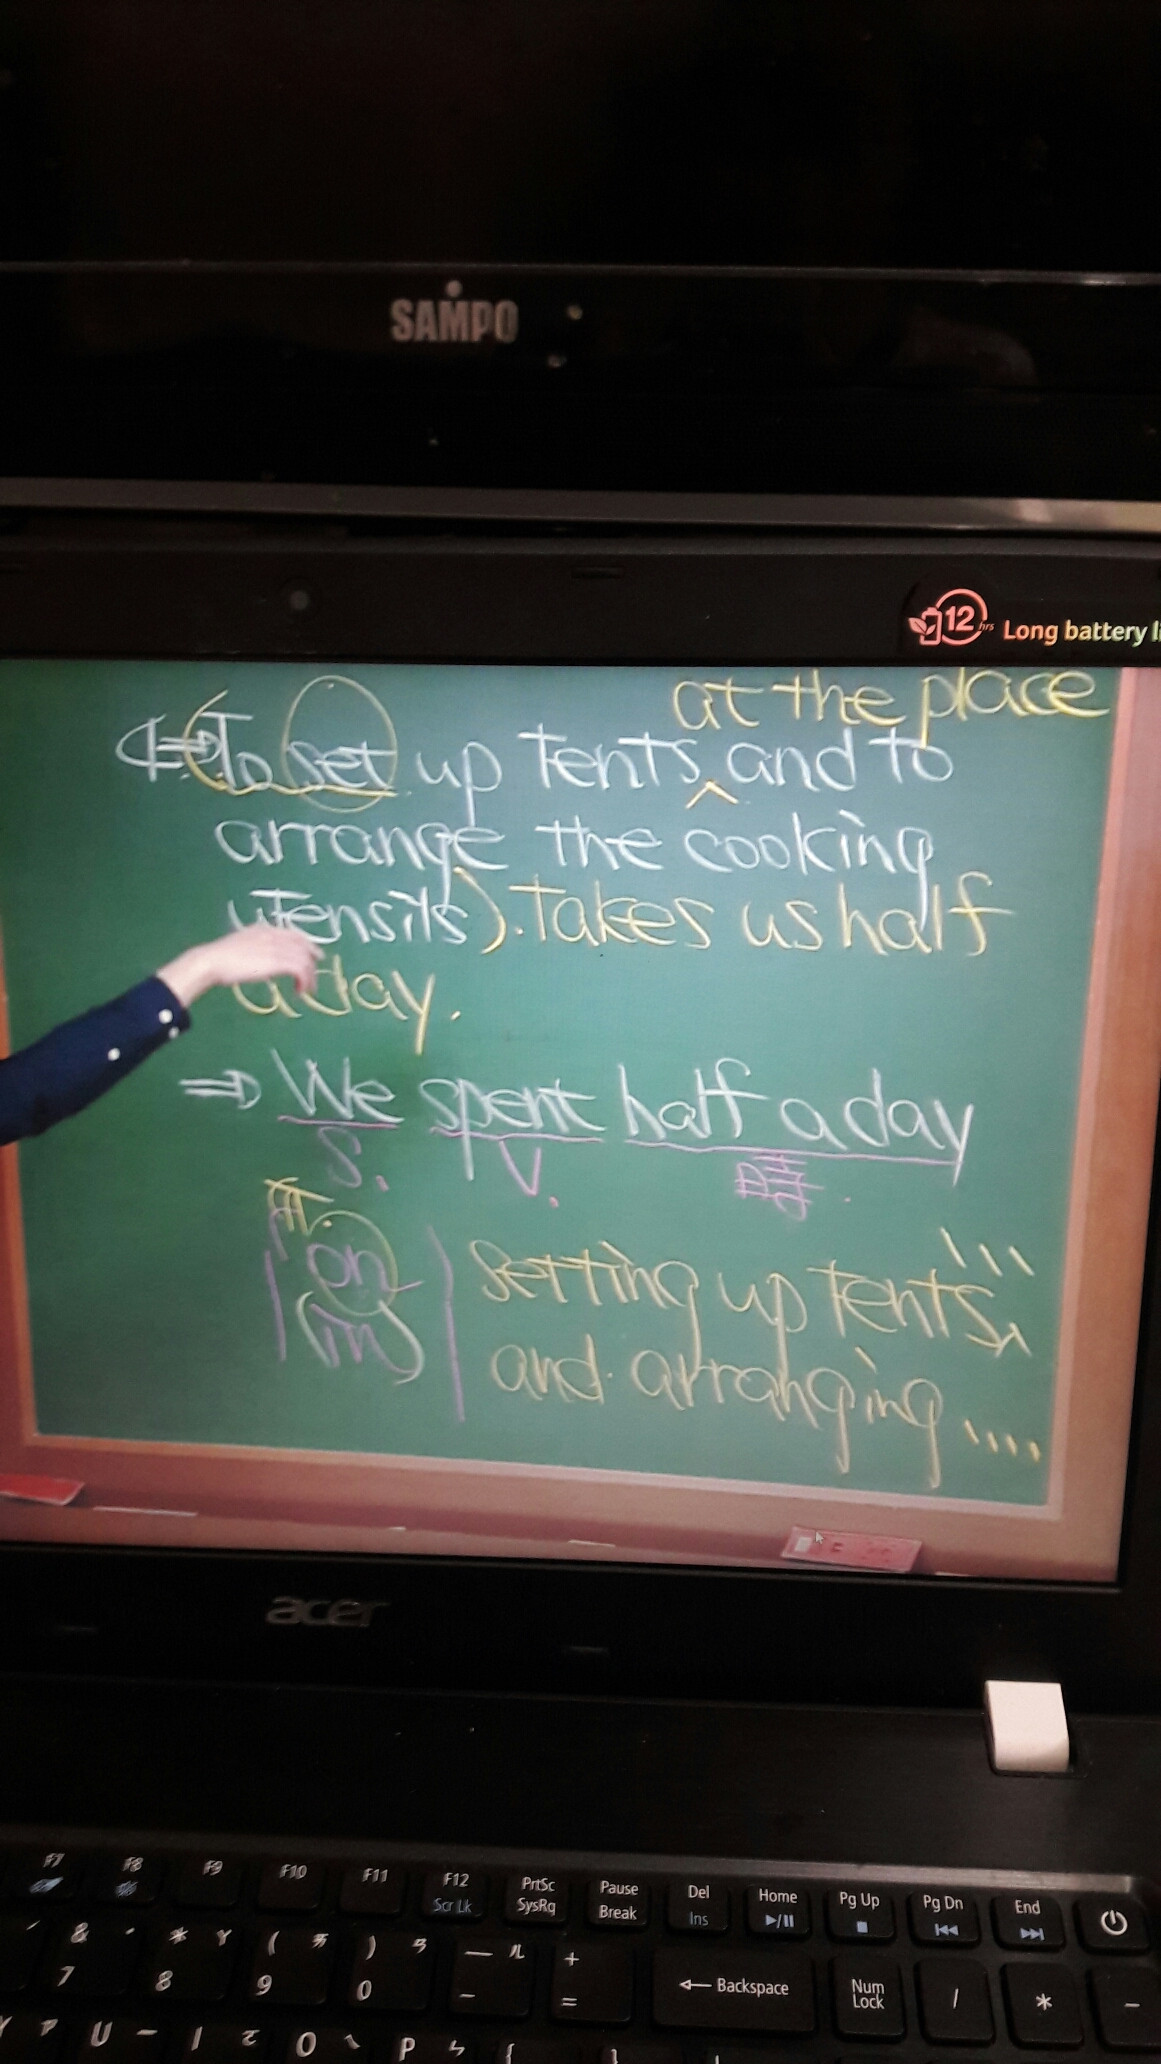 SAMPO
12 hrs Long battery li
at the place
⇒ To set up tents ^ and to
arrange the cooking
utensils). Takes us half
a day.
⇒ We spent half a day
S. V. 時間.
on
(in)
setting up tents
and arranging ....
acer
F7 F8 F9 F10 F11 F12 PrtSc Pause Del Home Pg Up Pg Dn End
Scr Lk SysRq Break Ins
& * ㄚ ( ㄞ ) ㄢ — ㄦ +
7 8 9 0 - = Backspace Num Lock / * -
U ㄧ I ㄛ O ㄟ P ㄣ { }